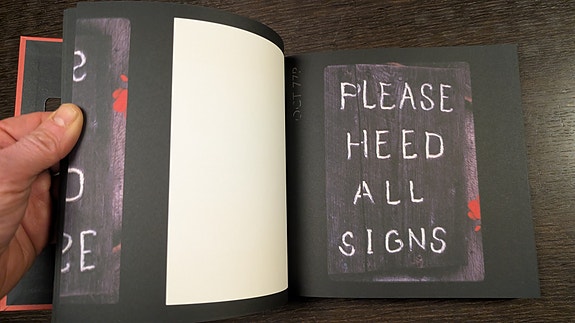 PLEASE
HEED
ALL
SIGNS